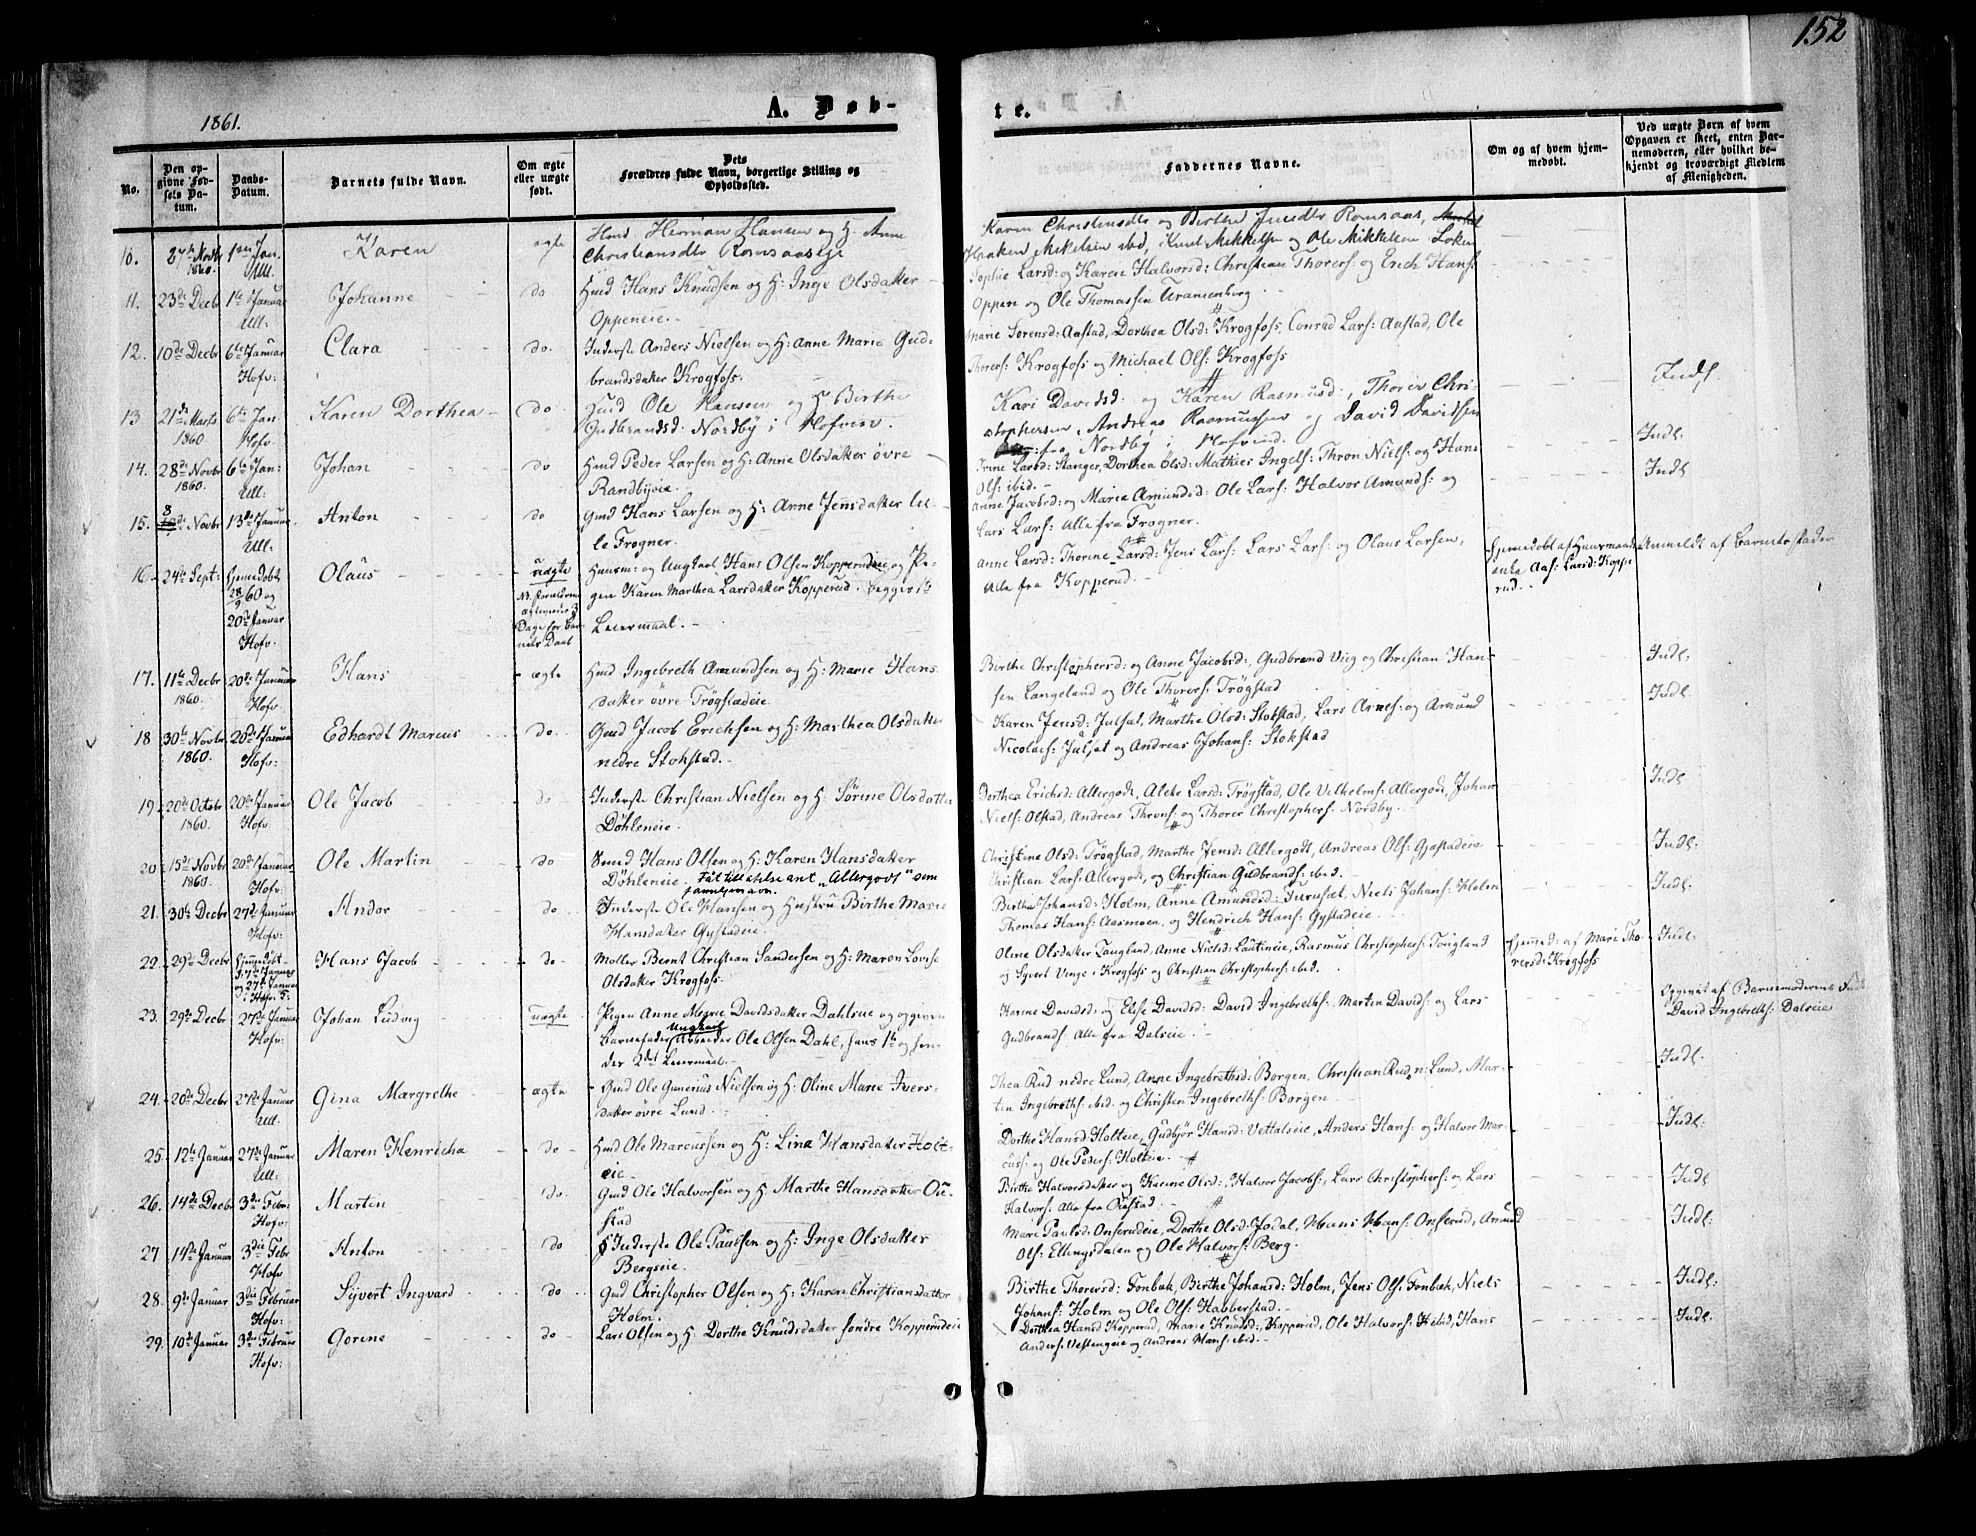 152
1861.
A. Døb-
te.
No.
Den opgivne Fødsels Datum.
Daabs-Datum.
Barnets fulde Navn.
Om ægte eller uægte født.
Dets Forældres fulde Navn, borgerlige Stilling og Opholdssted.
Faddernes Navne.
Om og af hvem hjemmedøbt.
Ved uægte Børn af hvem Opgaven er skeet, enten Barnemoderen, eller hvilket bekjendt og troværdigt Medlem af Menigheden.
10. 27de Novbr 1860. 1ste Jan. Ull. Karen ægte Hmd Herman Hansen og H: Anne
Christiansdtr Romsaaseje
Karen Christensdtr og Birthe Romsaas,
Haaken Mikelsen ibd, Knut Mikkelsen og Ole Mikkelsen Løken
11. 23de Decbr 1ste Januar Ull: Johanne do Hmd Hans Knudsen og H: Inge Olsdatter
Oppeneie.
Sophie Larsd: og Karen Halvorsd: Christian Thorers: og Erich Hans:
Oppen og Ole Thomassen Tranenborg
12. 10de Decbr 6te Januar Hofv: Clara do. Inderste Anders Nielsen og H: Anne Marie Gud-
brandsdatter Krogfoss.
Marie Sørensd: Aastad, Dorthea Olsd: Krogfoss, Conrad Lars: Aastad, Ole
Thorers: Krogfoss og Michael Ols: Krogfoss
Indl
13 21de Marts 1860 6te Jan Hofv. Karen Dorthea do Hmd Ole Hansen og H Birthe
Gudbrandsd: Nordby i Hofvin.
Kari Davidsd: og Karen Rasmusd:, Thorer Chri-
stophersen, Andreas Rasmussen og David Davidsen
fra Nordby i Hofvind.
Indl:
14. 28de Novbr 1860. 6te Jan: Ull: Johan do Hmd Peder Larsen og H: Anne Olsdatter øvre
Randbyeie.
Trine Larsd: Stanger, Dorthea Olsd: Mathies Ingels: Thron Niels: og Hans
Ols: ibid.
Indl
15. 8 Novbr 13de Januar Ull: Anton do Gmd Hans Larsen og H: Anne Jensdatter lil-
le Frogner.
Anne Jacobsd: og Maria Amundsd: Ole Lars: Halvor Amunds: og
Lars Lars: Alle fra Frogner.
16 24de Sept: hjemedøbt 28/9 60 og 20de Januar Hofv. Olaus uægte Huusm: og Ungkarl Hans Olsen Kopperudeie og Pi-
gen Karen Marthea Larsdatter Kopperud. begges 1ste
Leiermaal.
Anne Larsd: Thorine Larsd: Jens Lars: Lars Lars: og Olaus Larsen,
Alle fra Kopperud.
Hjemedøbt af Huusmands
enke Larsd: Koppe
rud.
Anmeldt af
17. 11te Decbr 1860. 20de Januar Hofv. Hans ægte Hmd Ingebreth Amundsen og H: Marie Hans
datter øvre Trøgstadeie.
Birthe Christophersd: og Anne Jacobsd:, Gudbrand Vieg og Christian Han-
sen Langeland og Ole Thorers: Trøgstad
Indl:
18 30te Novbr 1860. 20de Januar Hofv: Edhardt Marius do Gmd Jacob Erichsen og H: Marthea Olsdatter
nedre Stokstad.
Karen Jensd: Julsæt, Marthe Olsd: Stokstad, Lars Arnes: og Amund
Nicolaes: Julset og Andreas Johans: Stokstad
Indl.
19. 20de Octobr 1860. 20de Januar Hofv: Ole Jacob do Inderste Christian Nielsen og H: Sørine Olsdatter
Døhleneie.
Dorthea Ericksd: Allergodt, Aleke Larsd: Trøgstad, Ole Vilhelms: Allergodt, Johan
Niels: Olstad, Andreas Throns: og Thorer Christophers: Nordby.
Indl
20 15de Novbr 1860. 20de Januar Hofv: Ole Martin do Hans Olsen og H: Karen Hansdatter
Døhleneie. Fåt tillatelse ant „Allergodt“ som
familjenavn.
Christine Olsd: Trøgstad, Marthe Jensd: Allergodt, Andreas Ols: Gjestadeie
Christian Lars: Allergodt, og Christian Gudbrands: ibid.
Indl:
21. 30te Decbr 27de Januar Hofv: Andor do Inderste Ole Hansen og Hustru Birthe Marie
Hansdatter Gystadeie.
Birthe Johansd: Holm, Anne Amundsd: Furusæt, Niels Johans: Holm
Thomas Hans: Aasmoen, og Hendrich Hans: Gystadeie.
Indl:
22. 29de Decbr og 27de Januar i Hofv: Hans Jacob do Møller Bernt Christian Sandersen og H: Maren Lovise
Olsdatter Krogfoss.
Oline Olsdatter Taugland, Anne Nielsd: Lautineie, Rasmus Christophers: Tougland
og Syvert Vinge i Krogfoss og Christian Christophers: ibid.
Hjemed: af Mari Tho
rersd: Krogfoss
Indl:
23. 29de Decbr 27de Januar Hofv: Johan Ludvig uægte Pigen Anne Davidsdatter Dahlseie og opgiven
Barnefader Ungkarl Arbeider Ole Olsen Dahl, hans 1ste og hen-
der 2det Leiermaal.
Karine Davidsd: og Elise Davidsd: David Ingebreths: Martin Davids: og Lars
Gudbrands: Alle fra Dalseie.
Opgivet af Barnemoderens Fad
David Ingebreths: Dalseie
24. 20de Decbr 27de Januar Ull: Gina Margrethe ægte Gmd Ole Gunerius Nielsen og H: Oline Marie Ivers-
datter øvre Lund.
Thea Rud nedre Lund, Anne Ingebrethsd: Borgen, Christian Rud n: Lund, Mar-
tin Ingebreths: ibid. og Christen Ingebreths: Borgen.
Indl:
25. 12te Januar 27de Januar Ull: Maren Henricha do Hmd Ole Marcussen og H: Lina Hansdatter Holt-
eie.
Dorthe Hansd: Holteie, Gudbjør Hansd: Vettalseie, Anders Hans: og Halvor Mar-
cuss: og Ole Peders: Holteie.
Indl:
26. 14de Decbr 3die Febr: Hofv: Martin do Gmd Ole Halvorsen og H. Marthe Hansdatter Ou-
stad
Birthe Halvorsdatter og Karine Olsd:, Halvor Jacobs:, Lars Christophers: og Lars
Halvors: Alle fra Oustad.
Indl
27 14de Januar 3die Febr Hofv Anton do Inderste Ole Paulsen og H: Inge Olsdatter
Bergseie.
Mari Paulsd: Onserudeie, Dorthe Olsd: Jodal, Hans Hans: Onserud, Amund
Ols: Ellingsdalen og Ole Halvors: Berg.
Indl:
28. 9de Januar 3die Februar Hofv: Syvert Ingvard do Gmd Christopher Olsen og H: Karen Christiansdatter
Holm.
Birthe Thorersd: Fonbæk, Birthe Johansd: Holm, Jens Ols: Fonbæk, Niels
Johans: Holm og Ole Ols: Habberstad.
Indl:
29. 10de Januar 3die Februar Hofv: Gorine do Lars Olsen og H. Dorthe Knudsdatter søndre Kopperudeie
Dorthea Hansd Kopperud, Marie Knudsd: Kopperud, Ole Halvors: Kibsd, Hans
Anders: Vestengeie og Andreas Hans: ibid.
Indl: